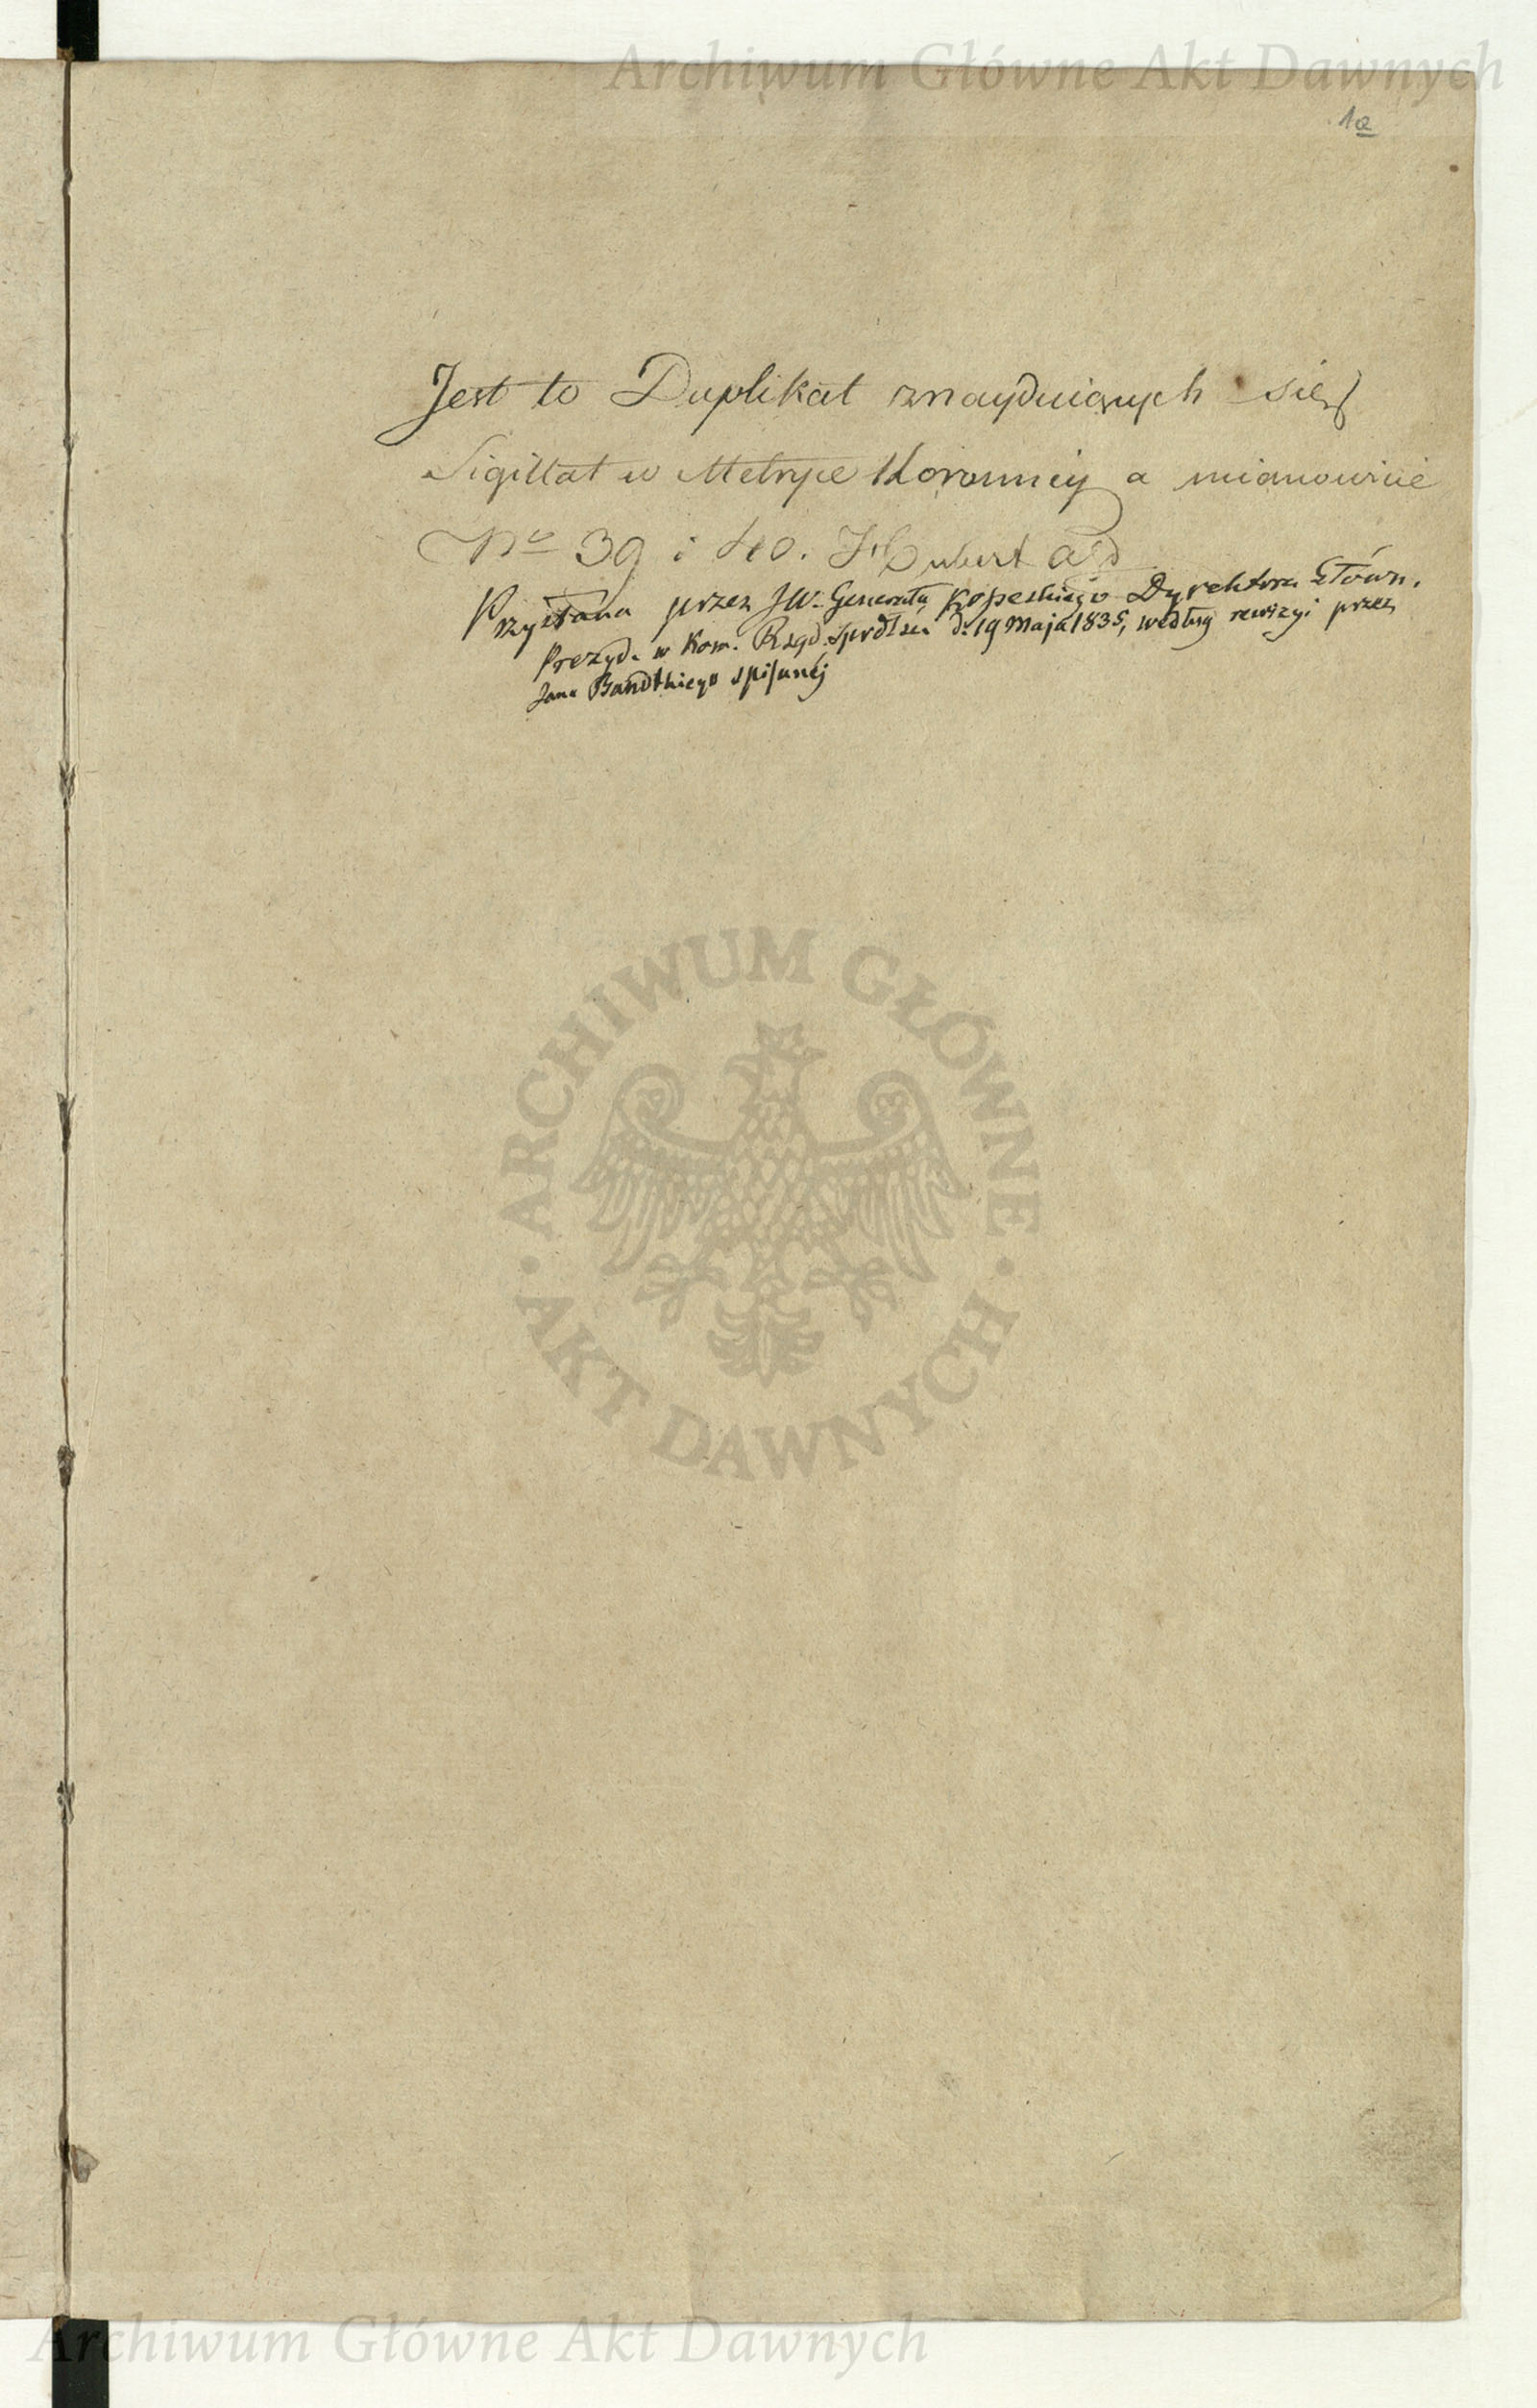 Archiwum Główne Akt Dawnych
1a
Jest to Duplikat znayduiących się
Sigillat w Metryce Koronney a mianowicie
No 39 i 40. Hubert
Przysłana przez JW. Generała Kopeckiego Dyrektora Główn.
Prezyd. w Kom. Rząd. d. 19 Maja 1835, według rewizyi przez
Jana Bandtkiego spisanéj
ARCHIWUM GŁÓWNE
AKT DAWNYCH
Archiwum Główne Akt Dawnych